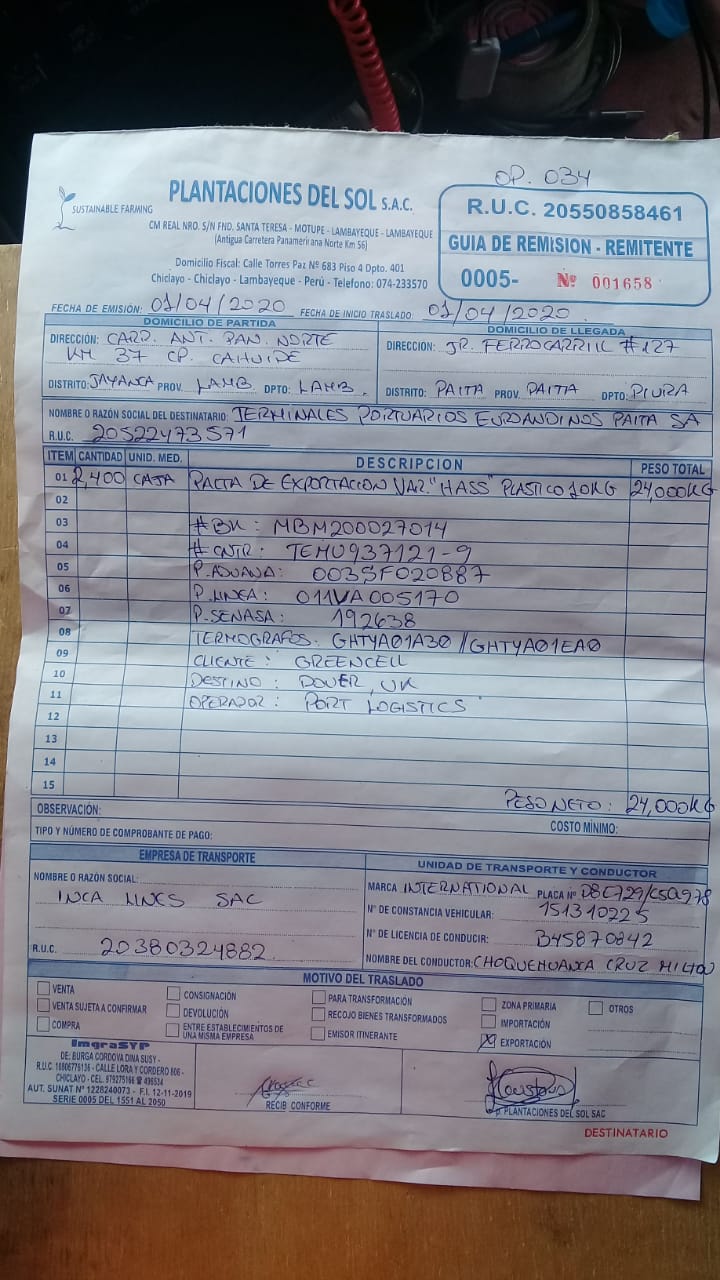 OP. 034
SUSTAINABLE FARMING
PLANTACIONES DEL SOL S.A.C.
CM REAL NRO. S/N FND. SANTA TERESA - MOTUPE - LAMBAYEQUE - LAMBAYEQUE
(Antigua Carretera Panamericana Norte Km 56)
Domicilio Fiscal: Calle Torres Paz Nº 683 Piso 4 Dpto. 401
Chiclayo - Chiclayo - Lambayeque - Perú - Telefono: 074-233570
R.U.C. 20550858461
GUIA DE REMISION - REMITENTE
0005- Nº 001658
FECHA DE EMISIÓN: 01/04/2020 FECHA DE INICIO TRASLADO: 01/04/2020
DOMICILIO DE PARTIDA
DIRECCIÓN: CARR. ANT. PAN. NORTE
KM 37 CP. CAHUIDE
DISTRITO: JAYANCA PROV. LAMB. DPTO: LAMB.
DOMICILIO DE LLEGADA
DIRECCION: JR. FERROCARRIL #127
DISTRITO: PAITA PROV. PAITA DPTO: PIURA
NOMBRE O RAZÓN SOCIAL DEL DESTINATARIO: TERMINALES PORTUARIOS EUROANDINOS PAITA SA
R.U.C. 20522473571
ITEM CANTIDAD UNID. MED. DESCRIPCION PESO TOTAL
01 2,400 CAJA PALTA DE EXPORTACION VAR. "HASS" PLASTICO 10KG 24,000KG
02
03 #BK: MBM200027014
04 #CNTR: TEMU937121-9
05 P.ADUANA: 0035F020887
06 P.LINEA: 011VA005170
07 P.SENASA: 192638
08 TERMOGRAFOS: GHTYA01A30 // GHTYA01EA0
09 CLIENTE: GREENCELL
10 DESTINO: DOVER, UK
11 OPERADOR: PORT LOGISTICS
12
13
14
15
PESO NETO: 24,000KG
OBSERVACIÓN:
COSTO MÍNIMO:
TIPO Y NÚMERO DE COMPROBANTE DE PAGO:
EMPRESA DE TRANSPORTE
NOMBRE O RAZÓN SOCIAL:
INCA LINES SAC
R.U.C. 20380324882
UNIDAD DE TRANSPORTE Y CONDUCTOR
MARCA INTERNATIONAL PLACA Nº D8C729/C5Q978
Nº DE CONSTANCIA VEHICULAR: 151310225
Nº DE LICENCIA DE CONDUCIR: B45870842
NOMBRE DEL CONDUCTOR: CHOQUEHUANCA CRUZ MILTON
MOTIVO DEL TRASLADO
VENTA
VENTA SUJETA A CONFIRMAR
COMPRA
CONSIGNACIÓN
DEVOLUCIÓN
ENTRE ESTABLECIMIENTOS DE
UNA MISMA EMPRESA
PARA TRANSFORMACIÓN
RECOJO BIENES TRANSFORMADOS
EMISOR ITINERANTE
ZONA PRIMARIA
IMPORTACIÓN
EXPORTACIÓN
OTROS
ImgraSYP
DE: BURGA CORDOVA DINA SUSY -
R.U.C. 16806776136 - CALLE LORA Y CORDERO 806 -
CHICLAYO - CEL. 979275166 496534
AUT. SUNAT Nº 1228240073 - F.I. 12-11-2019
SERIE 0005 DEL 1551 AL 2050
RECIB CONFORME
p. PLANTACIONES DEL SOL SAC
DESTINATARIO